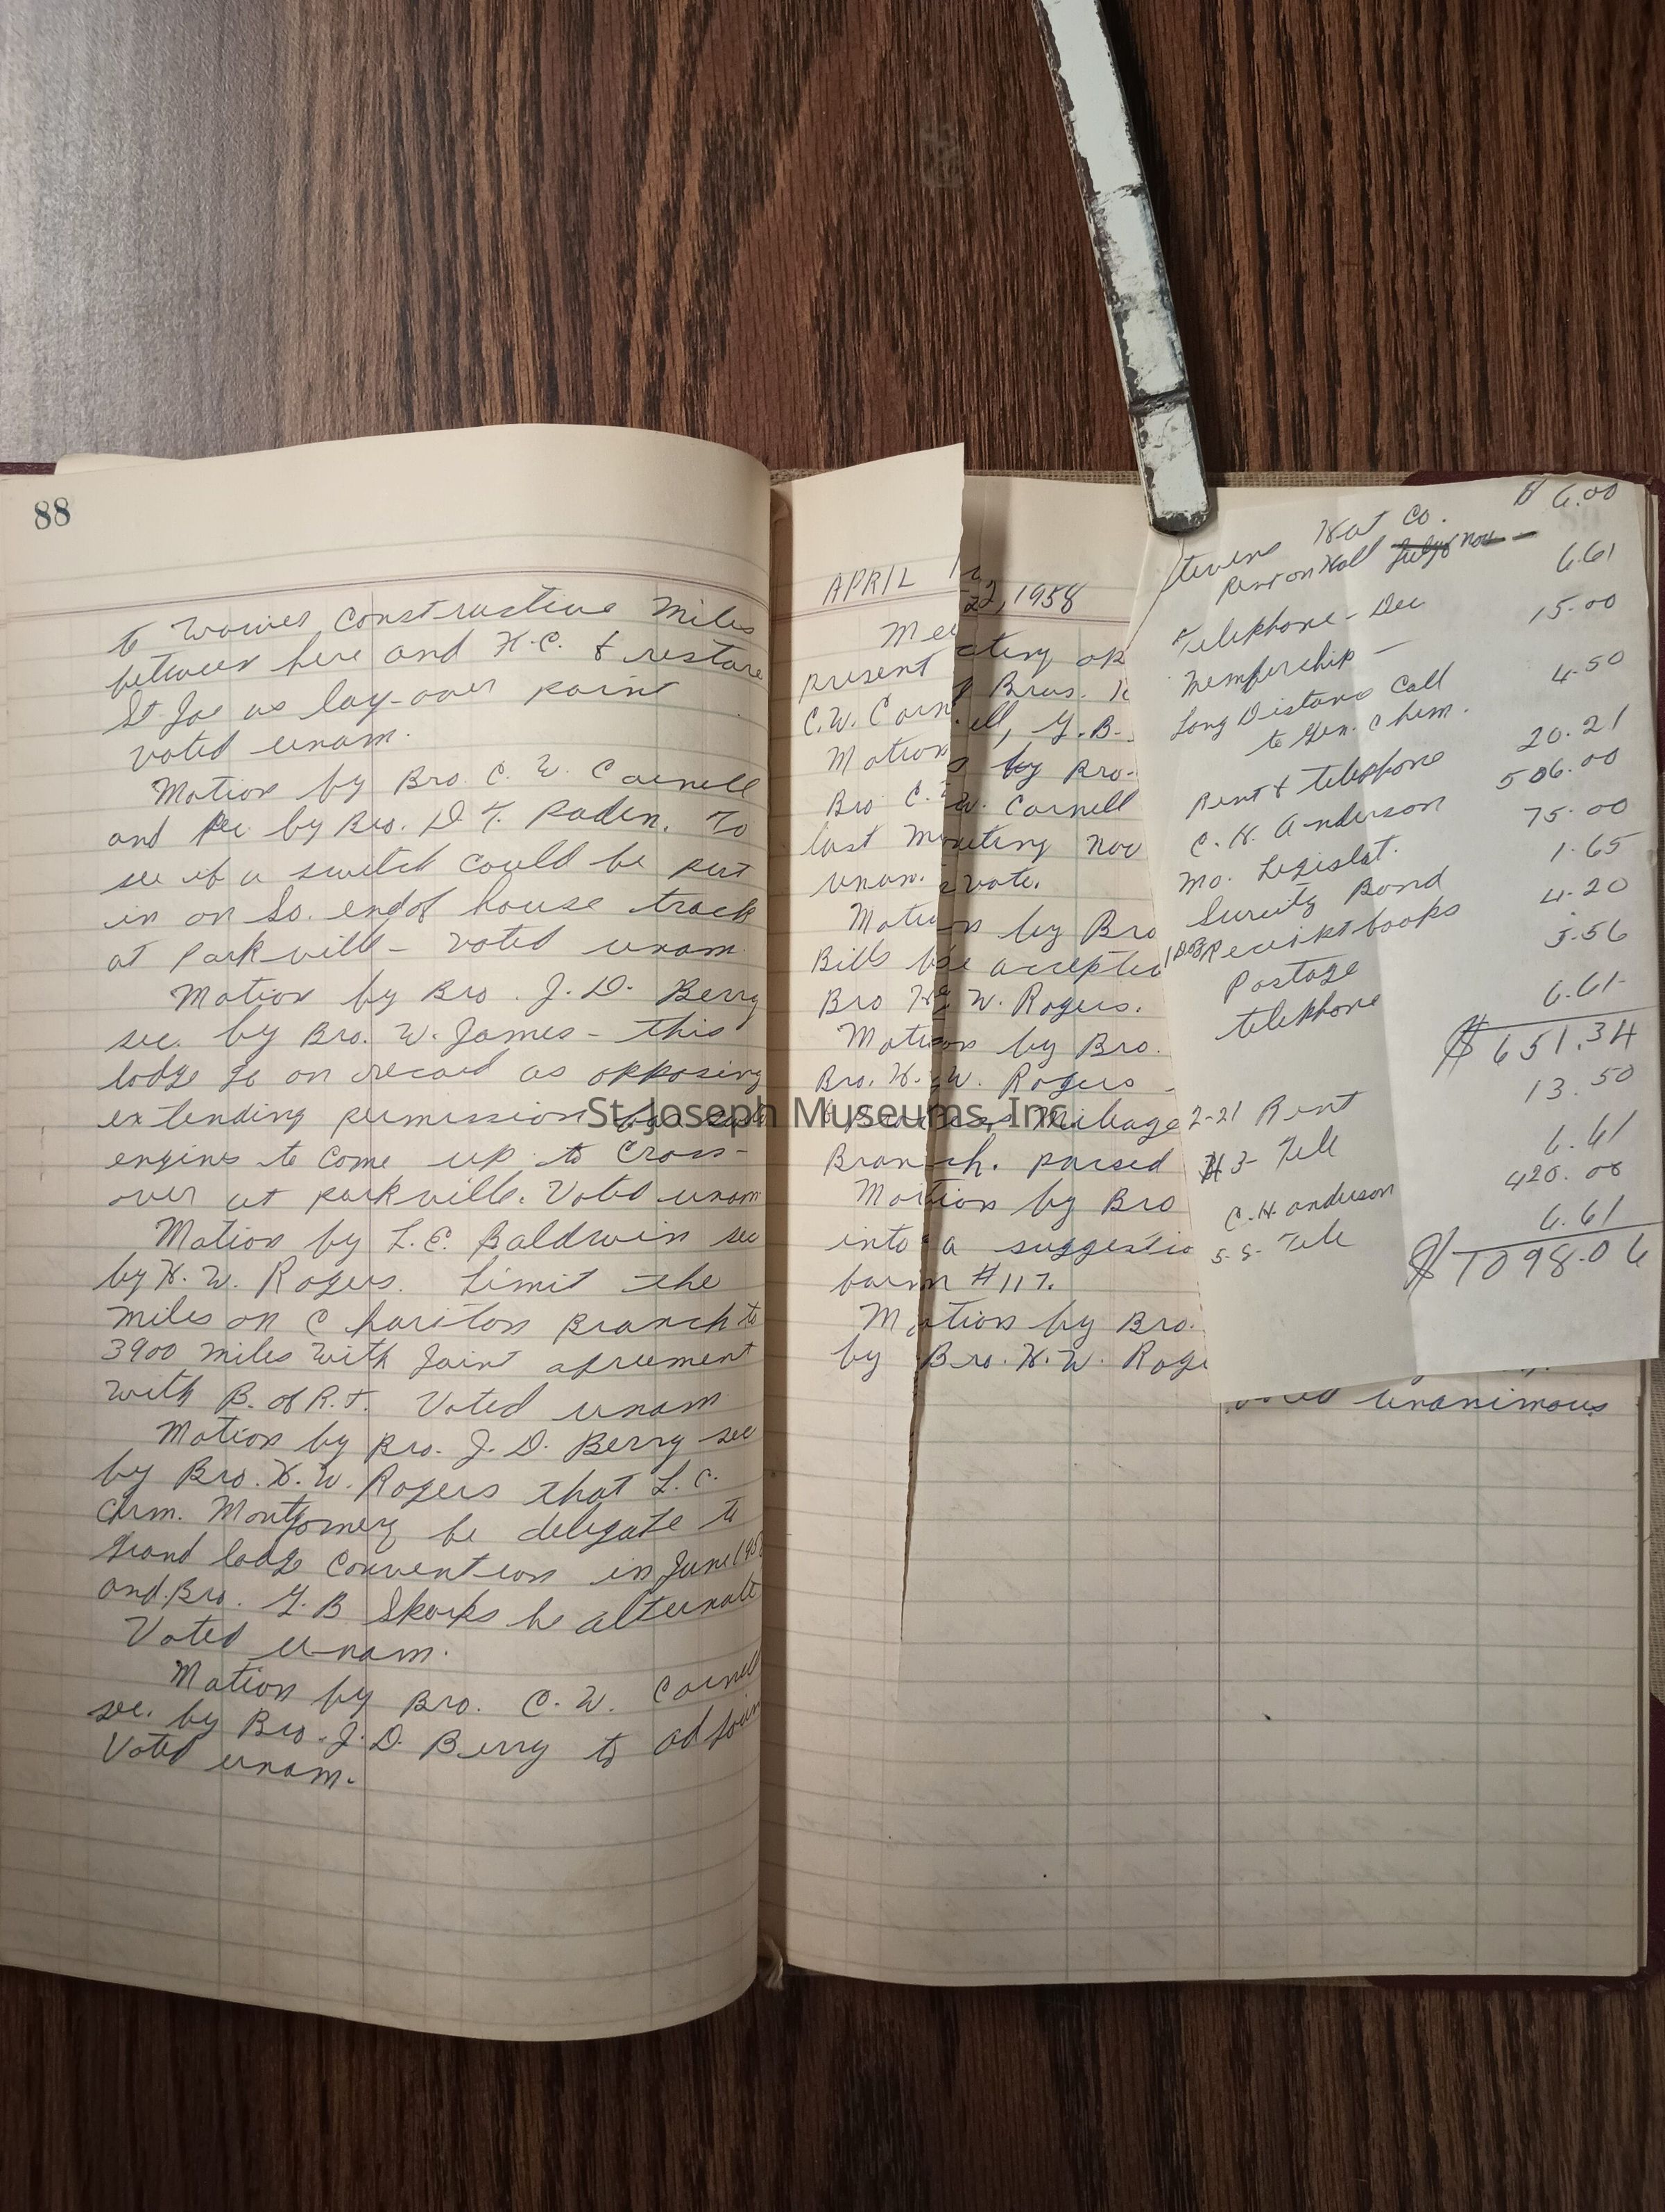 88
to waives constructive miles
between here and K.C. & restore
St. Joe as lay-over point
voted unam.
Motion by Bro. C. W. Cornell
and sec by Bro. D. T. Paden. To
see if a switch could be put
in on So. end of house track
at Parkville - voted unam.
Motion by Bro. J. D. Berry
sec. by Bro. W. James - this
lodge go on record as opposing
extending permission
engines to come up to Cross-
over at parkville. Voted unam
Motion by L. E. Baldwin sec
by H. W. Rogers. Limit the
miles on Chariton Branch to
3900 miles with Joint agreement
with B. of R.T. Voted unam
Motion by Bro. J. D. Berry sec
by Bro. H. W. Rogers that L. C.
Chrm. Montgomery be delegate to
Grand lodge Convention in June 195
and Bro. G. B Skorks be alternate
Voted unam.
Motion by Bro. C. W. Cornell
sec. by Bro. J. D. Berry to adjoin
Voted unam.
APRIL 22, 1958
Meeting op
present Bros.
C. W. Cornell, G. B.
Motions by Bro.
Bro C. W. Cornell
last meeting Nov
unan. vote.
Motions by Bro
Bills be accepted
Bro H. W. Rogers.
Motions by Bro.
Bro. H. W. Rogers -
Mileage
Branch. passed
Motion by Bro
into a suggestio
barn #117.
Motion by Bro.
by Bro. H. W. Roge
unanimous
Stevens Hat Co. $ 6.00
Rent on Hall July Nov -
Telephone - Dec 6.61
Membership - 15.00
Long Distans Call
to Gen. Chm. 4.50
Rent & telephone 20.21
C. H. Anderson 506.00
Mo. Legislat. 75.00
Surity Bond 1.65
1 Doz Receipt books 4.20
Postage 5.56
telephone 6.61
$651.34
2-21 Rent 13.50
3- Tele 6.61
C. H. anderson 420.00
5-5- Tele 6.61
$1098.06
St. Joseph Museums, Inc.